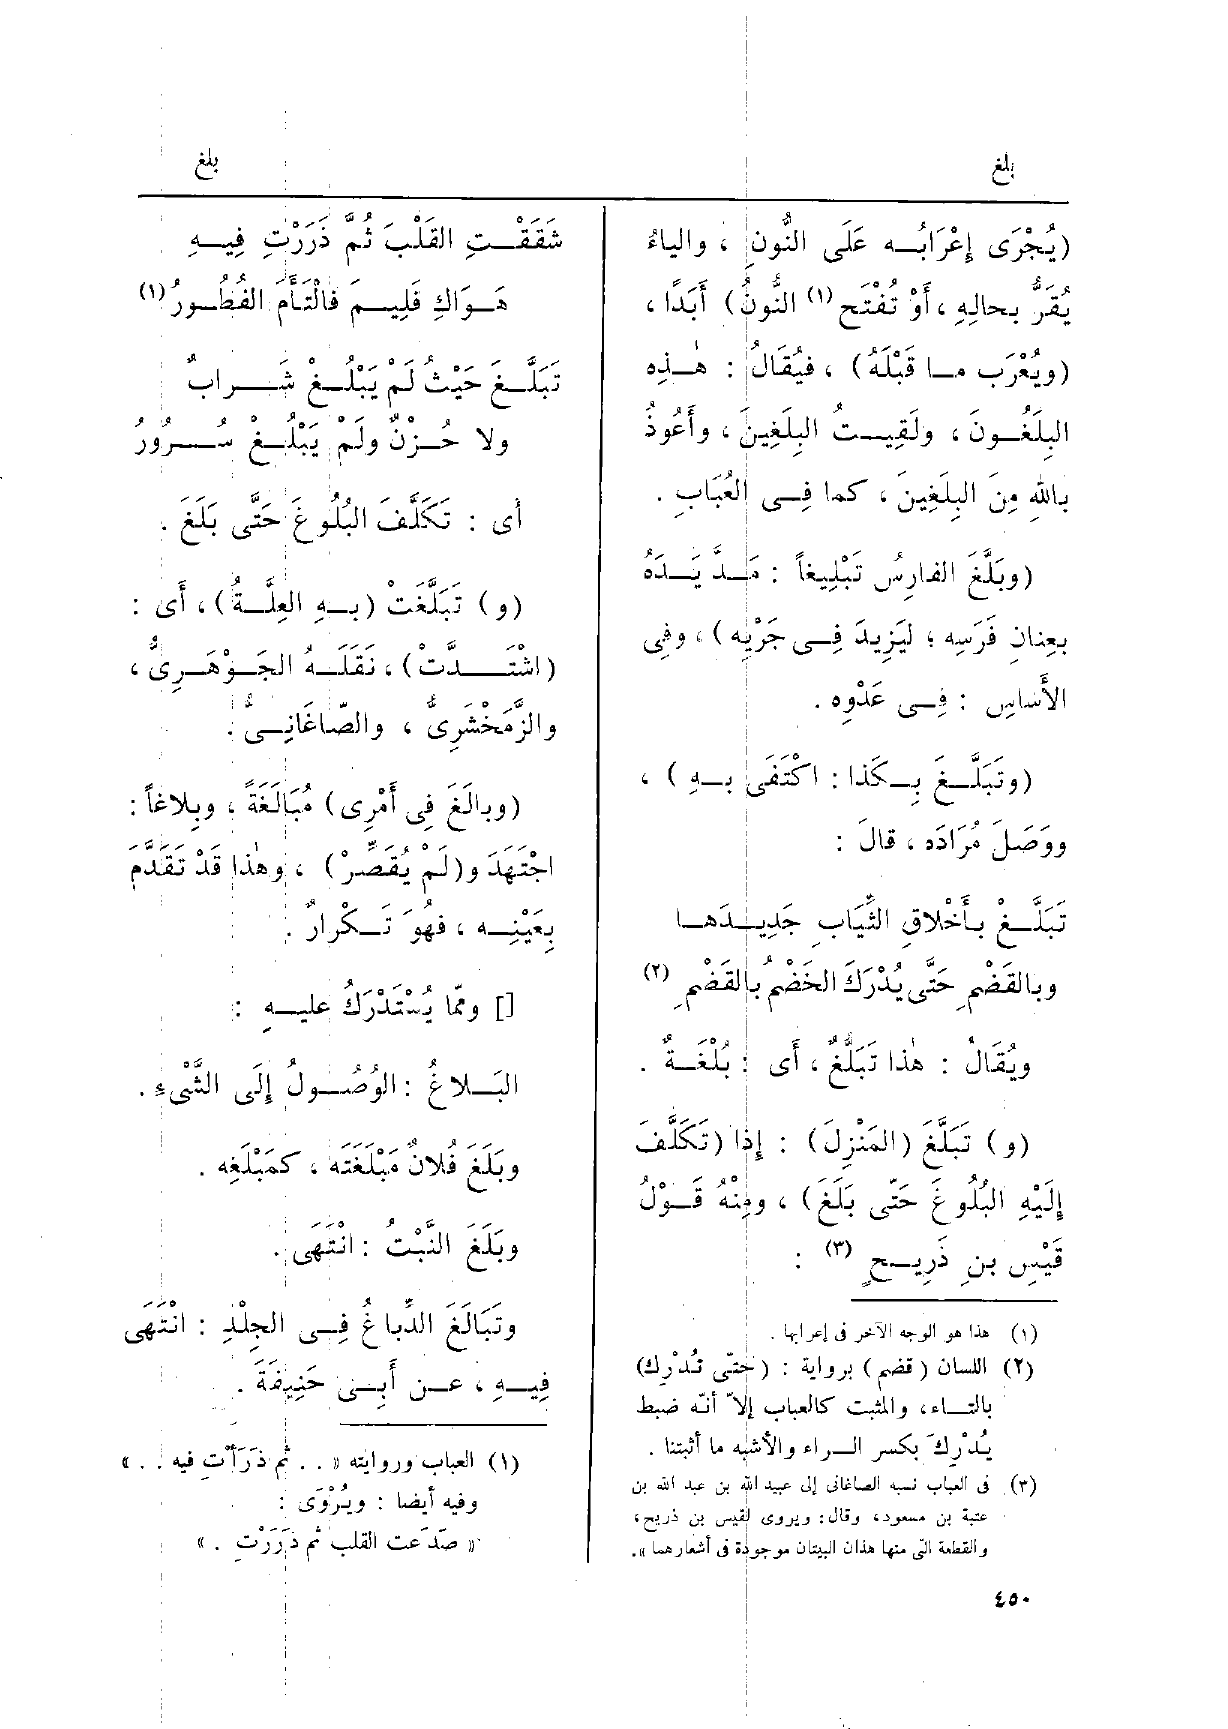 بلغ
بلغ
(يُجْرَى إِعْرَابُــه عَلَى النُّونِ ، والياءُ
يُقَرُّ بحالِهِ ، أَوْ تُفْتَح (١) النُّونُ) أَبَدًا ،
(ويُعْرَب مــا قَبْلَهُ) ، فيُقَالُ : هٰــذِه
البِلَغُــونَ ، ولَقِيــتُ البِلَغِينَ ، وأَعُوذُ
بالله مِنَ البِلَغِينَ ، كما فِــى العُبَابِ .
(وبَلَّغَ الفارِسُ تَبْلِيغاً : مَــدَّ يَــدَهُ
بعِنانِ فَرَسِه ؛ ليَزِيدَ فِــى جَرْيِه) ، وفِى
الأَساسِ : فِــى عَدْوِه .
(وتَبَلَّــغَ بِــكَذا : اكْتَفَى بــهِ) ،
ووَصَلَ مُرَادَه ، قالَ :
تَبَلَّــغْ بــأَخْلاقِ الثِّيَابِ جَدِيــدَهــا
وبالقَضْمِ حَتَّى يُدْرَكَ الخَضْمُ بالقَضْمِ (٢)
ويُقَالُ : هٰذا تَبَلُّغٌ ، أَى : بُلْغَــةٌ .
(و) تَبَلَّغَ (المَنْزِلَ) : إِذا (تَكَلَّفَ
إِلَيْهِ البُلُوغَ حَتّى بَلَغَ) ، ومِنْهُ قَــوْلُ
قَيْسِ بنِ ذَرِيــحٍ (٣) :
(١) هذا هو الوجه الآخر فى إعرابها .
(٢) اللسان (قضم) برواية : (حَتّى تُدْرِك)
بالتــاء، والمثبت كالعباب إلاّ أنّه ضبط
يُدْرِكَ بكسر الــراء والأشبه ما أثبتنا .
(٣) فى العباب نسبه الصاغانى إلى عبيد الله بن عبد الله بن
عتبة بن مسعود، وقال: ويروى لقيس بن ذريح،
والقطعة التى منها هذان البيتان موجودة فى أشعارهما ».
شَقَقْــتِ القَلْبَ ثُمَّ ذَرَرْتِ فِيــهِ
هَــوَاكِ فَلِيــمَ فالْتَأَمَ الفُطُــورُ (١)
تَبَلَّــغَ حَيْثُ لَمْ يَبْلُــغْ شَــرابٌ
ولا حُــزْنٌ ولَمْ يَبْلُــغْ سُــرُورُ
أى : تَكَلَّفَ البُلُوغَ حَتَّى بَلَغَ .
(و) تَبَلَّغَتْ (بــهِ العِلَّــةُ) ، أَى :
(اشْتَــدَّتْ) ، نَقَلَــهُ الجَــوْهَــرِىُّ ،
والزَّمَخْشَرِىُّ ، والصّاغَانِــىُّ .
(وبالَغَ فِى أَمْرِى) مُبَالَغَةً ، وبِلاغاً :
اجْتَهَدَ و(لَمْ يُقَصِّرْ) ، وهٰذا قَدْ تَقَدَّمَ
بعَيْنِــه ، فهُوَ تَــكْرارٌ .
[] وممّا يُسْتَدْرَكُ عليــهِ :
البَــلاغُ : الوُصُــولُ إِلَى الشَّىْءِ .
وبَلَغَ فُلانٌ مَبْلَغَتَه ، كمَبْلَغِه .
وبَلَغَ النَّبْتُ : انْتَهَى .
وتَبَالَغَ الدِّباغُ فِــى الجِلْدِ : انْتَهَى
فِيــهِ ، عــن أَبِــى حَنِيفَةَ .
(١) العباب وروايته « . . ثم ذَرَأْتِ فيه . . »
وفيه أيضا : ويُرْوَى :
« صَدَعت القلب ثم ذَرَرْتِ . »
٤٥٠